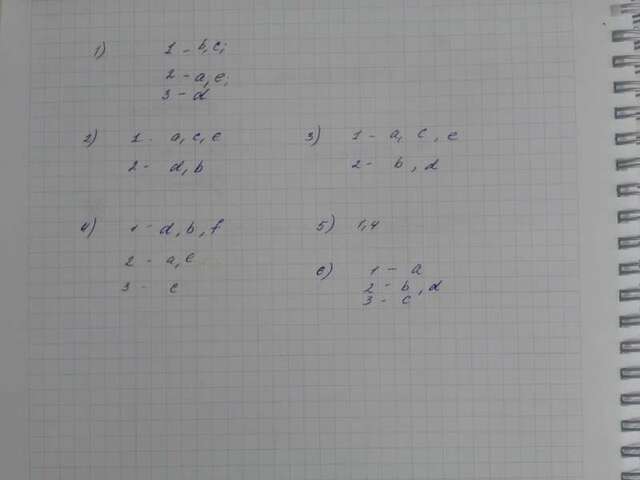 1) 1 - b, c;
2 - a, e;
3 - d
2) 1 - a, c, e
2 - d, b
3) 1 - a, c, e
2 - b, d
4) 1 - d, b, f
2 - a, e
3 - c
5) 1,4
6) 1 - a
2 - b, d
3 - c